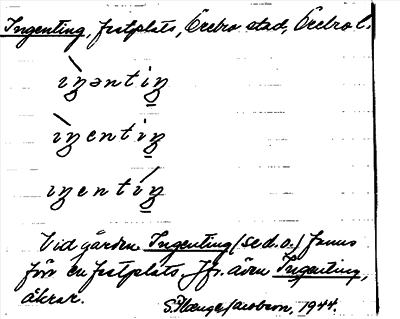 Ingenting, festplats, Örebro stad, Örebro l.
ìŋəntiŋ
ìŋentiŋ
ıŋentíŋ
Vid gården Ingenting (se d.o.) finns
för en festplats. Jfr även Ingenting,
åkrar.
S. Hænge Jacobson, 1944.